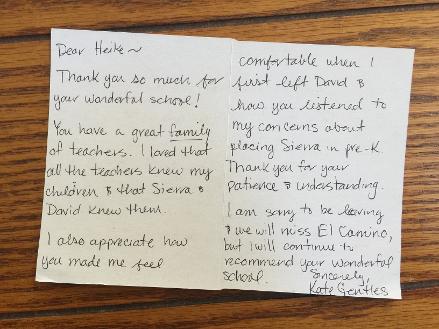 Dear Heike ~
Thank you so much for
your wonderful school!
You have a great family
of teachers. I loved that
all the teachers knew my
children & that Sierra &
David knew them.
I also appreciate how
you made me feel
comfortable when I
first left David &
how you listened to
my concerns about
placing Sierra in pre-K.
Thank you for your
patience & understanding.
I am sorry to be leaving
& we will miss El Camino,
but I will continue to
recommend your wonderful
school.
Sincerely,
Kate Gentles